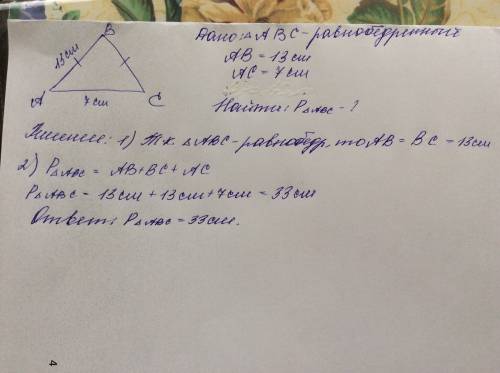 B
13см
A
7см
C
Дано: △ABC-равнобедренный
AB = 13см
AC = 7см
Найти: P△ABC - ?
Решение: 1) Т.к. △ABC-равнобедр., то AB = BC = 13см
2) P△ABC = AB+BC+AC
P△ABC = 13см + 13см+7см = 33см
Ответ: P△ABC = 33см.
4